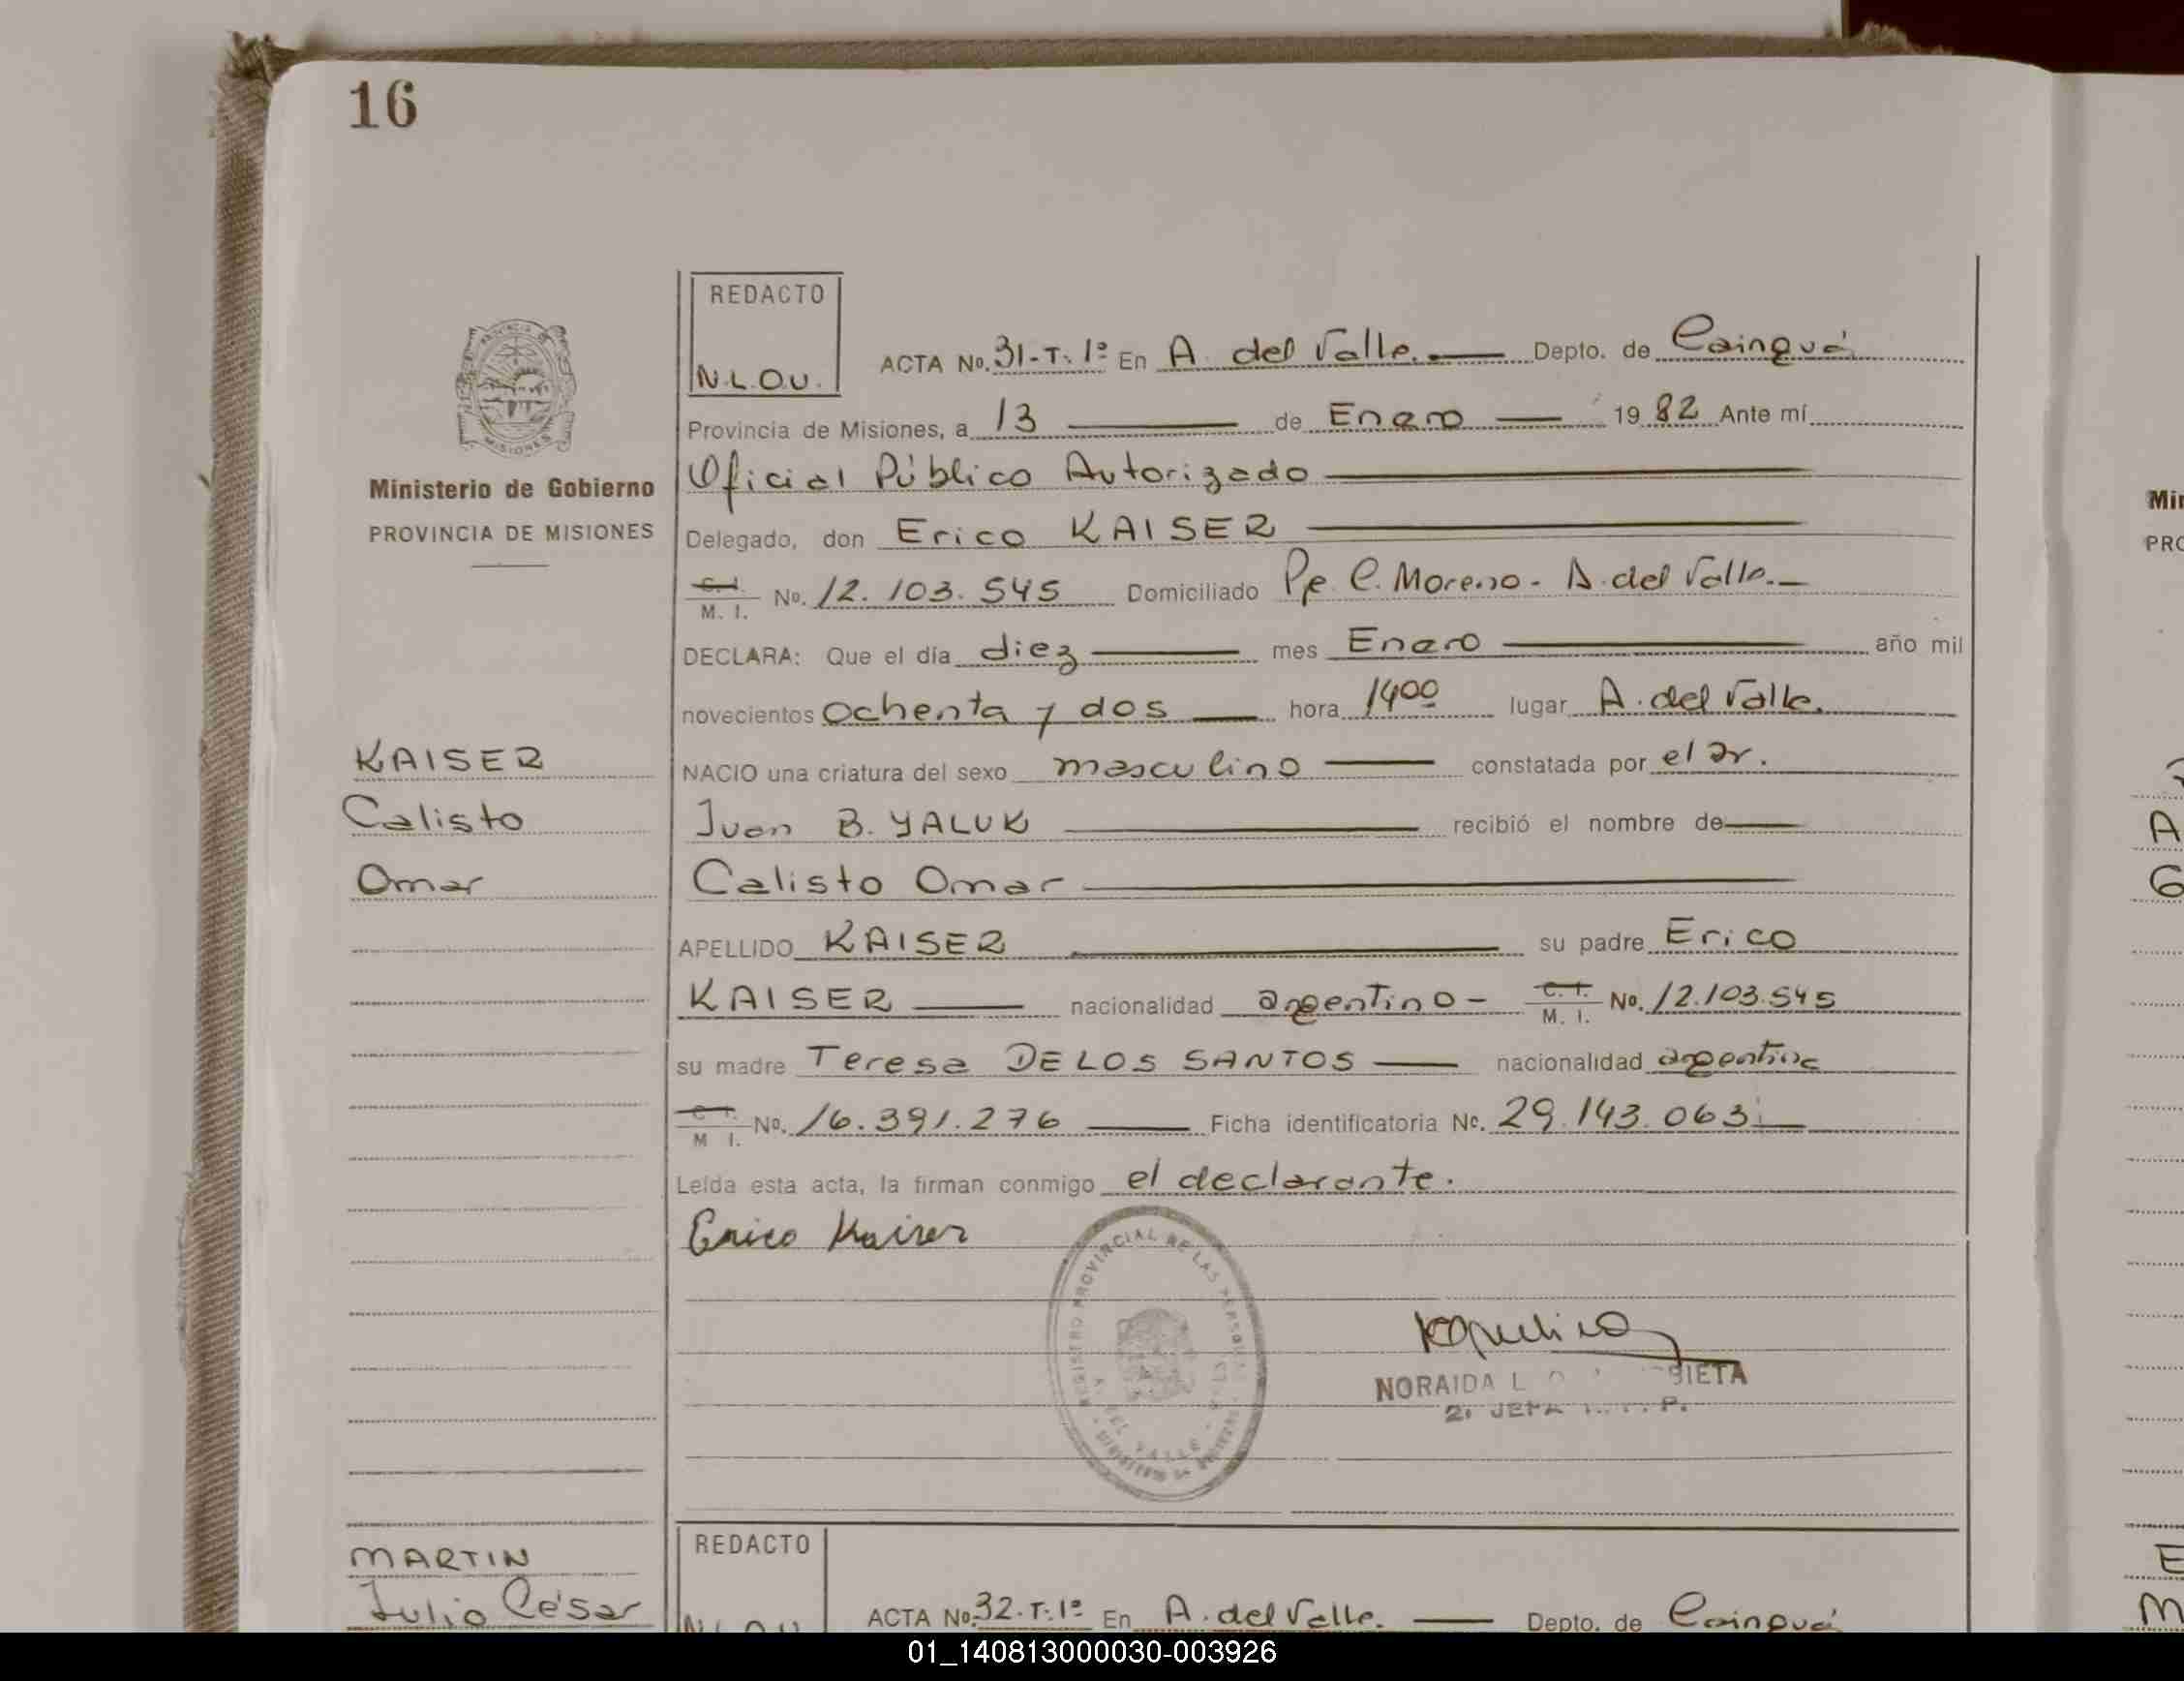 16
REDACTO
N.L.O.U.
ACTA No. 31-T. 1º En A. del Valle. Depto. de Cainguá
Provincia de Misiones, a 13 de Enero 1982 Ante mí
Oficial Público Autorizado
Ministerio de Gobierno
PROVINCIA DE MISIONES
Delegado, don Erico KAISER
C. I. M. I. No. 12.103.545 Domiciliado Pje. C. Moreno - A. del Valle.
DECLARA: Que el día diez mes Enero año mil
novecientos ochenta y dos hora 1400 lugar A. del Valle.
KAISER
Calisto
Omar
NACIO una criatura del sexo masculino constatada por el Dr.
Juan B. YALUK recibió el nombre de
Calisto Omar
APELLIDO KAISER su padre Erico
KAISER nacionalidad argentino - C. I. M. I. No. 12.103.545
su madre Teresa DE LOS SANTOS nacionalidad argentina
C. I. M I. No. 16.391.276 Ficha identificatoria No. 29.143.063
Leída esta acta, la firman conmigo el declarante.
Erico Kaiser
REGISTRO PROVINCIAL DE LAS PERSONAS
A. DEL VALLE
NORAIDA L
MARTIN
Julio César
REDACTO
N.L.O.U.
ACTA No. 32-T. 1º En A. del Valle. Depto. de Cainguá
Min
PRO
A
G
E
M
01_140813000030-003926